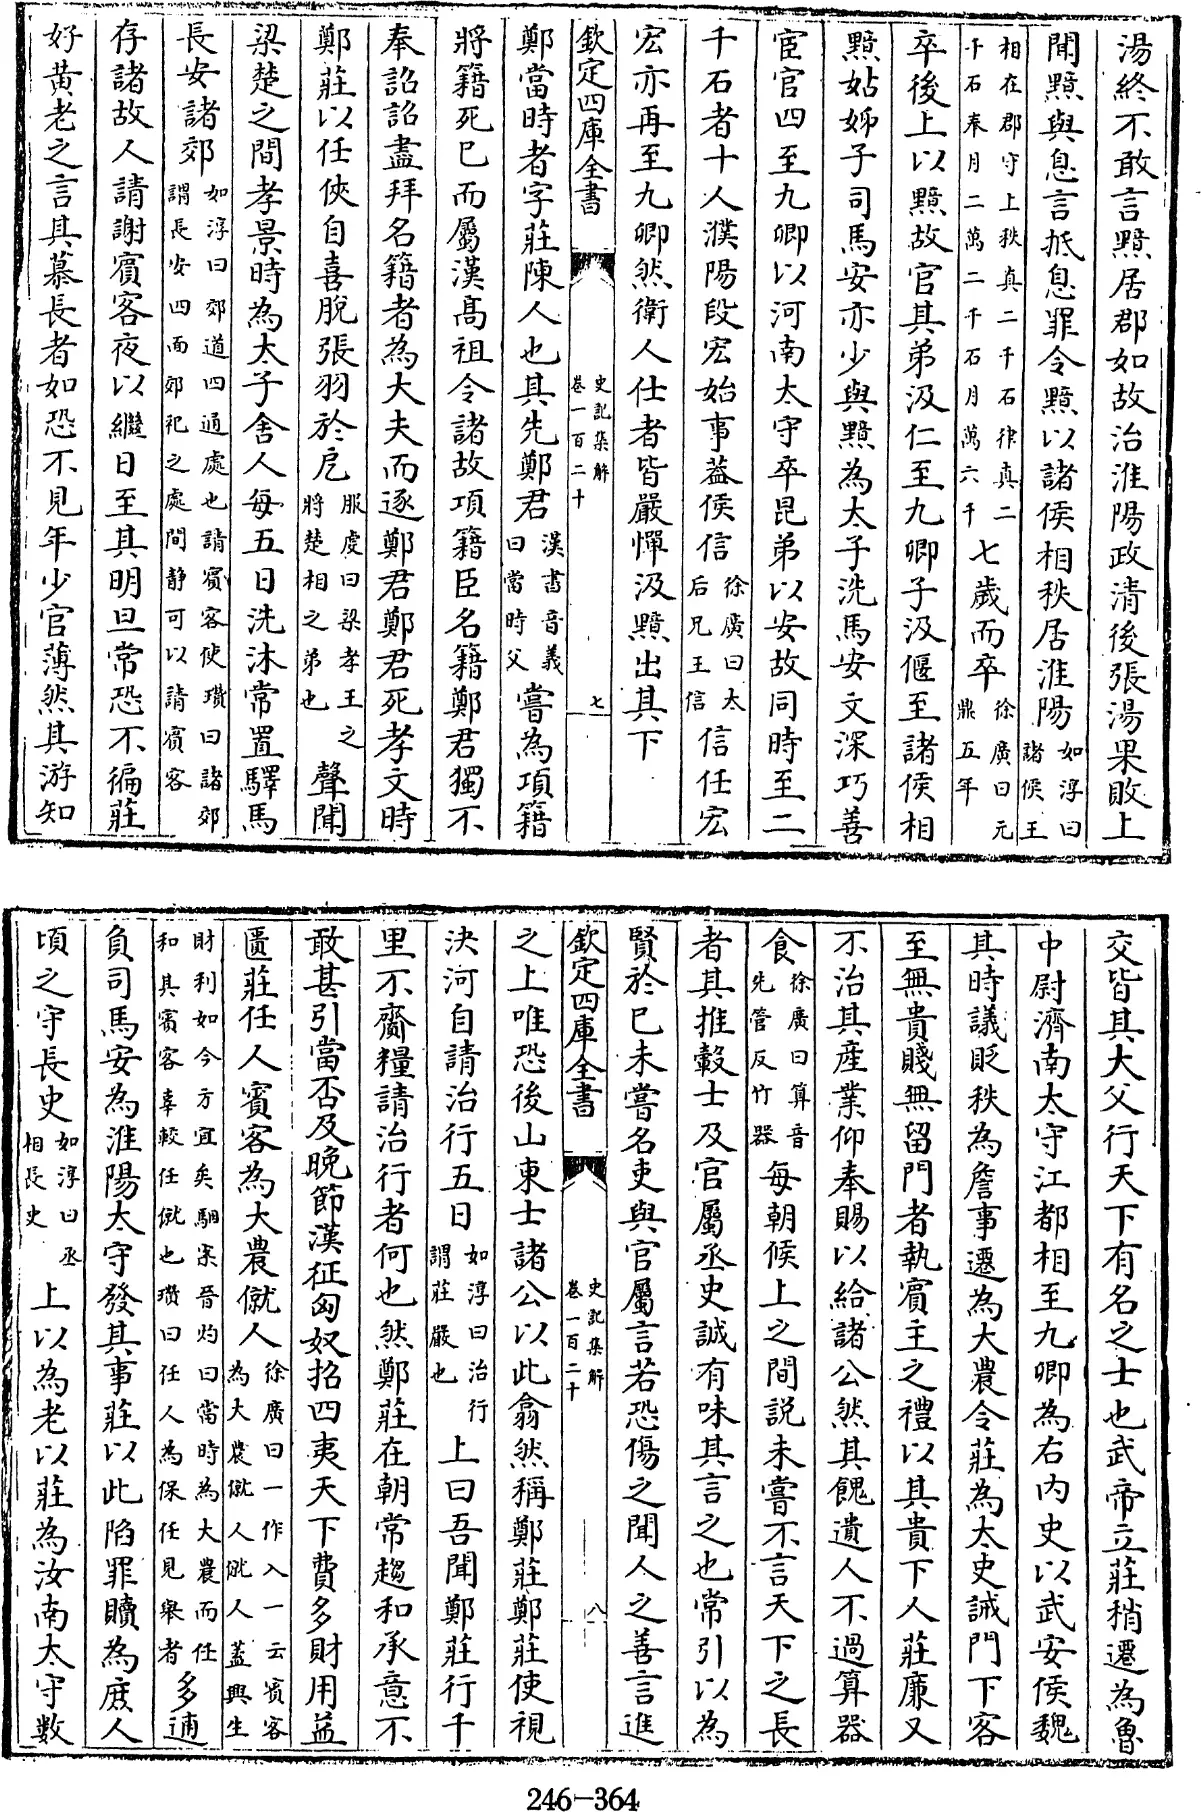 湯終不敢言黯居郡如故治淮陽政清後張湯果敗上
聞黯與息言抵息罪令黯以諸侯相秩居淮陽如淳曰諸侯王
相在郡守上秩真二千石律真二千石奉月二萬二千石月萬六千七歲而卒徐廣曰元鼎五年
卒後上以黯故官其弟汲仁至九卿子汲偃至諸侯相
黯姑姊子司馬安亦少與黯為太子洗馬安文深巧善
宦官四至九卿以河南太守卒昆弟以安故同時至二
千石者十人濮陽段宏始事葢侯信徐廣曰太后兄王信信任宏
宏亦再至九卿然衛人仕者皆嚴憚汲黯出其下
欽定四庫全書 史記集解卷一百二十 七
鄭當時者字莊陳人也其先鄭君漢書音義曰當時父嘗為項籍
將籍死已而屬漢高祖令諸故項籍臣名籍鄭君獨不
奉詔詔盡拜名籍者為大夫而逐鄭君鄭君死孝文時
鄭莊以任俠自喜脫張羽於戹服虔曰梁孝王之將楚相之弟也聲聞
梁楚之間孝景時為太子舍人每五日洗沐常置驛馬
長安諸郊如淳曰郊道四通處也請賓客便瓚曰諸郊謂長安四面郊祀之處間静可以請賓客
存諸故人請謝賓客夜以繼日至其明旦常恐不徧莊
好黃老之言其慕長者如恐不見年少官薄然其游知
交皆其大父行天下有名之士也武帝立莊稍遷為魯
中尉濟南太守江都相至九卿為右內史以武安侯魏
其時議貶秩為詹事遷為大農令莊為太史誡門下客
至無貴賤無留門者執賓主之禮以其貴下人莊廉又
不治其產業仰奉賜以給諸公然其餽遺人不過算器
食徐廣曰算音先管反竹器每朝候上之間說未嘗不言天下之長
者其推轂士及官屬丞史誠有味其言之也常引以為
賢於已未嘗名吏與官屬言若恐傷之聞人之善言進
欽定四庫全書 史記集解卷一百二十 八
之上唯恐後山東士諸公以此翕然稱鄭莊鄭莊使視
決河自請治行五日如淳曰治行謂莊嚴也上曰吾聞鄭莊行千
里不齎糧請治行者何也然鄭莊在朝常趨和承意不
敢甚引當否及晚節漢征匈奴招四夷天下費多財用益
匱莊任人賓客為大農僦人徐廣曰一作入一云賓客為大農僦人僦人蓋興生
財利如今方宜矣駰案晉灼曰當時為大農而任和其賓客辜較任僦也瓚曰任人為保任見舉者多逋
負司馬安為淮陽太守發其事莊以此陷罪贖為庶人
頃之守長史如淳曰丞相長史上以為老以莊為汝南太守數
246-364